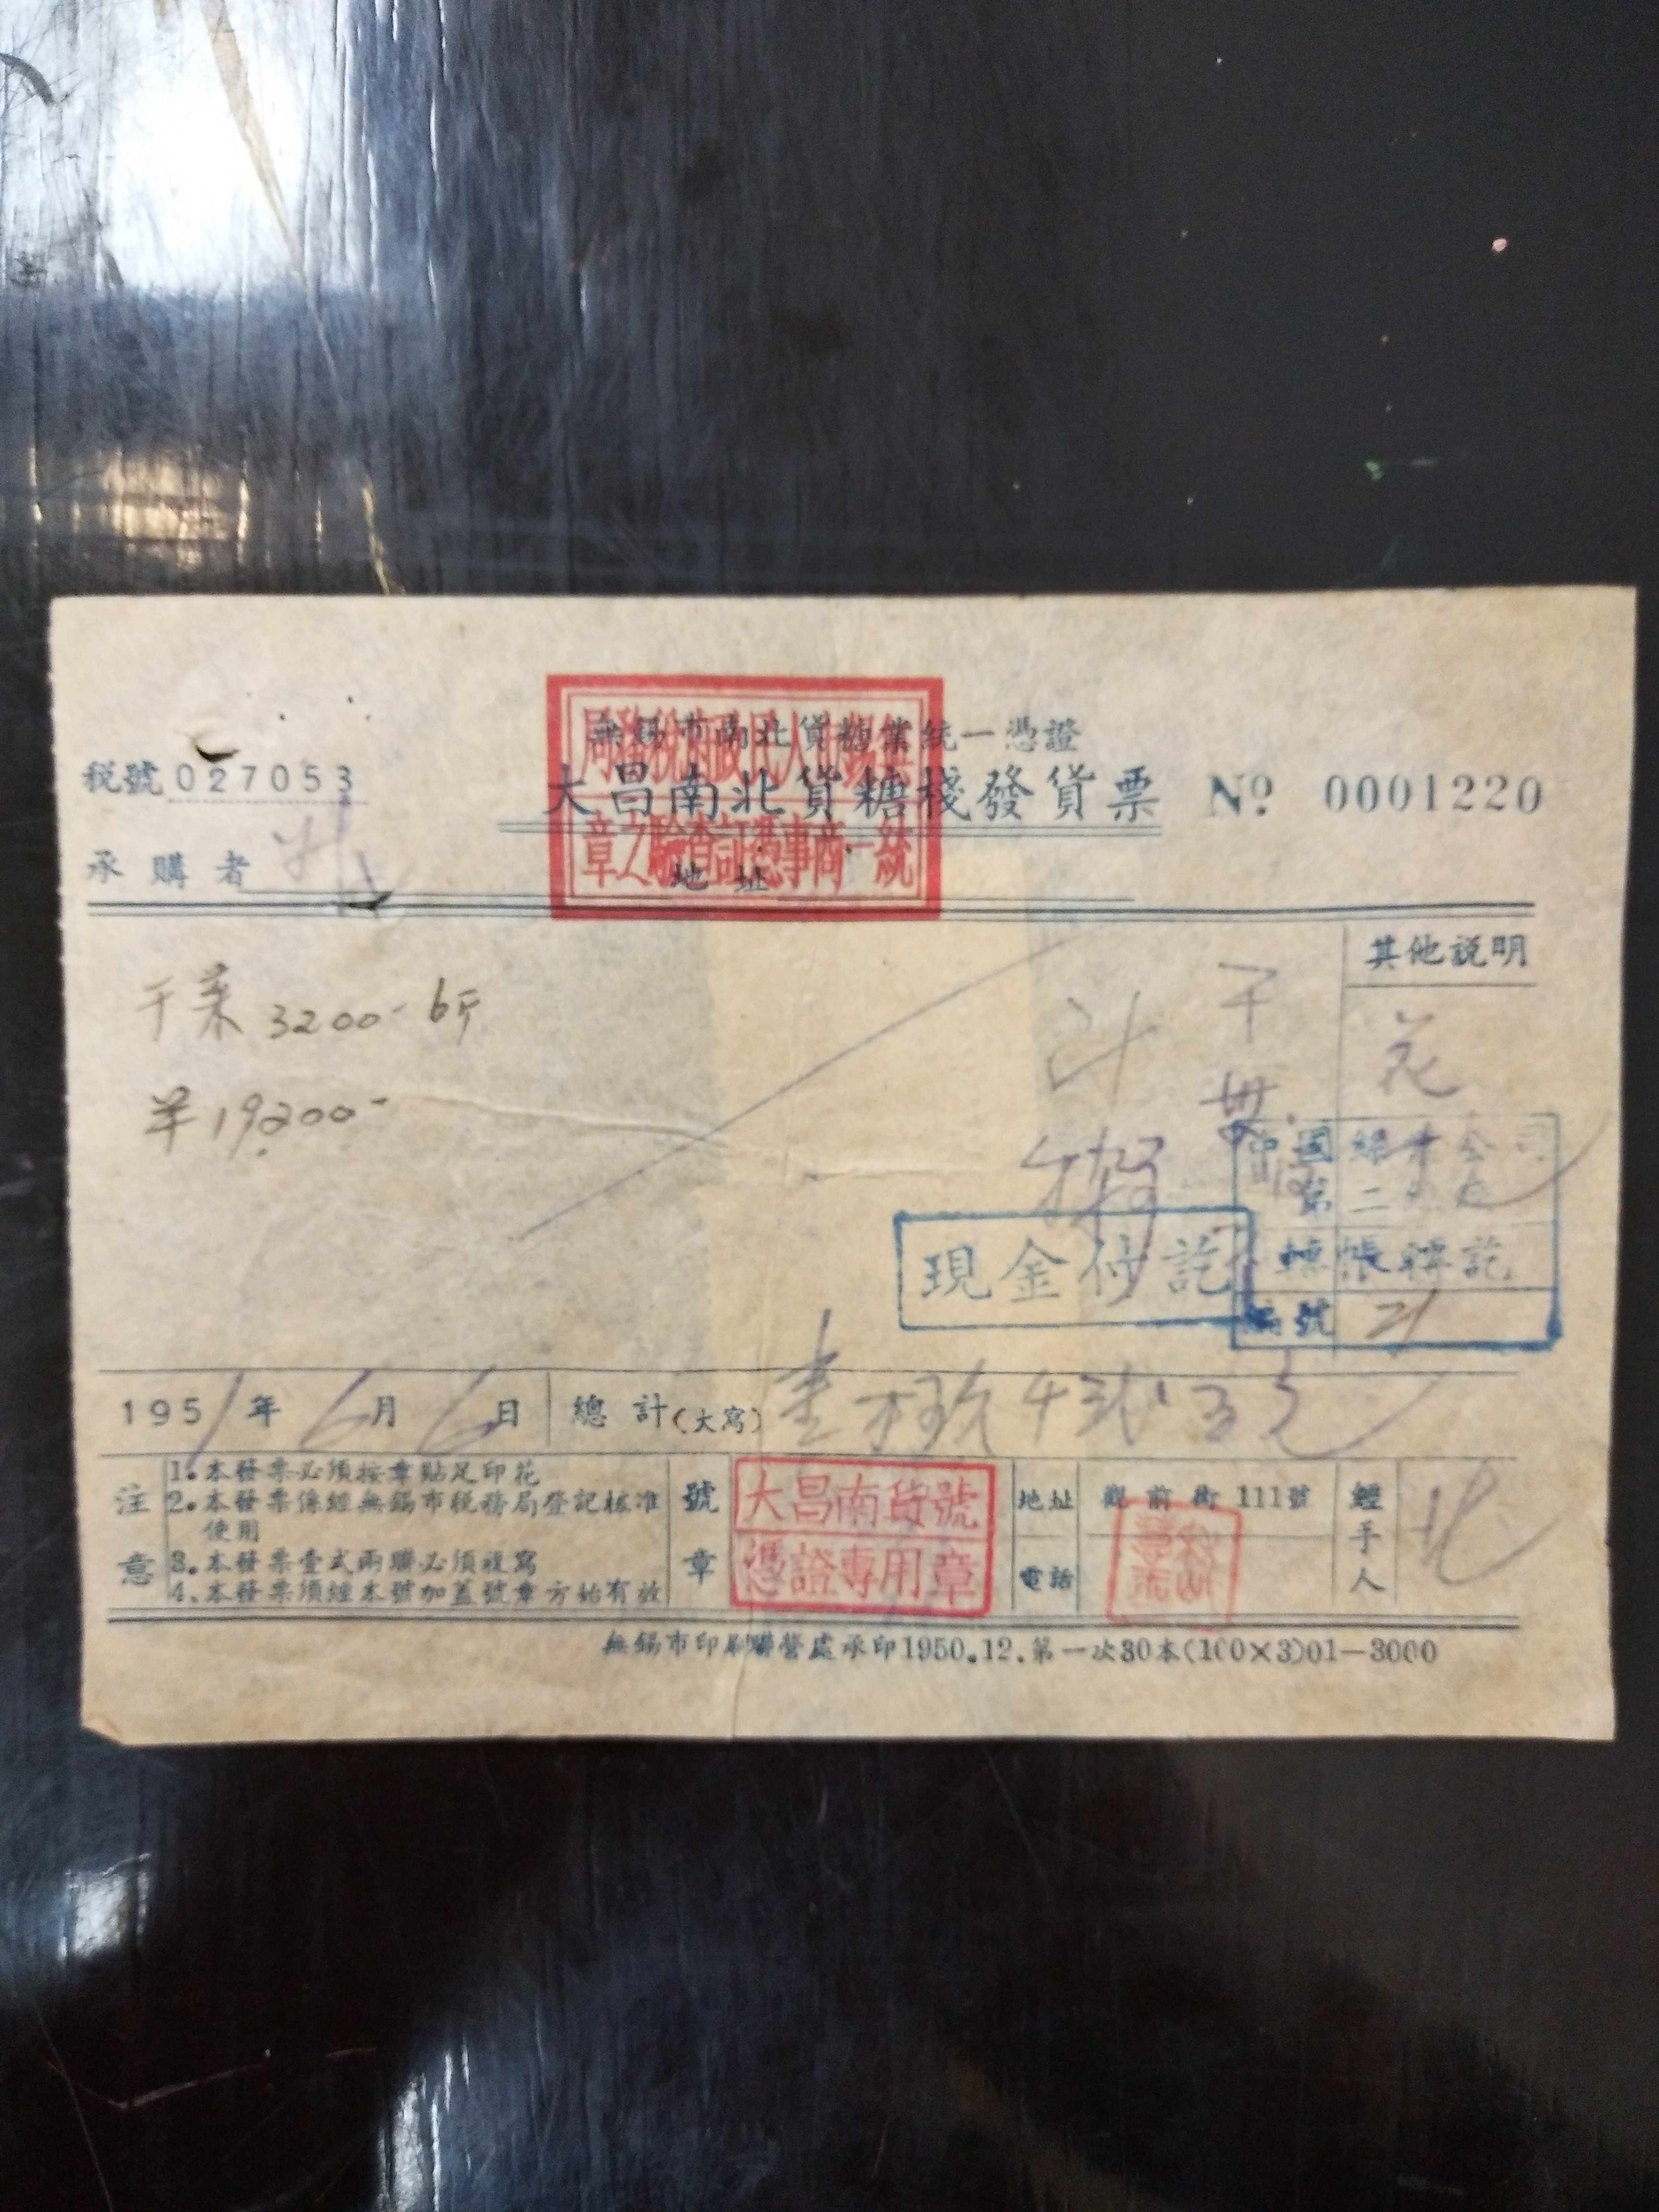 無錫市南北貨糖業統一憑證
稅號 027053
大昌南北貨糖棧發貨票 No 0001220
無錫市人民政府稅務局
統一商事憑証查驗之章
承購者
地址
其他說明
干菜 3200- 6斤
羊 19200-
中國 公司
第二
現金付訖
轉帳轉訖
編號 21
1951年6月6日 總計(大寫) 壹 玖千弍百元
注意
1.本發票必須按章貼足印花
2.本發票係經無錫市稅務局登記核准
使用
3.本發票壹式兩聯必須複寫
4.本發票須經本號加蓋號章方始有效
號章
大昌南貨號
憑證專用章
地址 觀前街111號
電話
經手人
無錫市印刷聯營處承印1950.12.第一次30本(100×3)01—3000